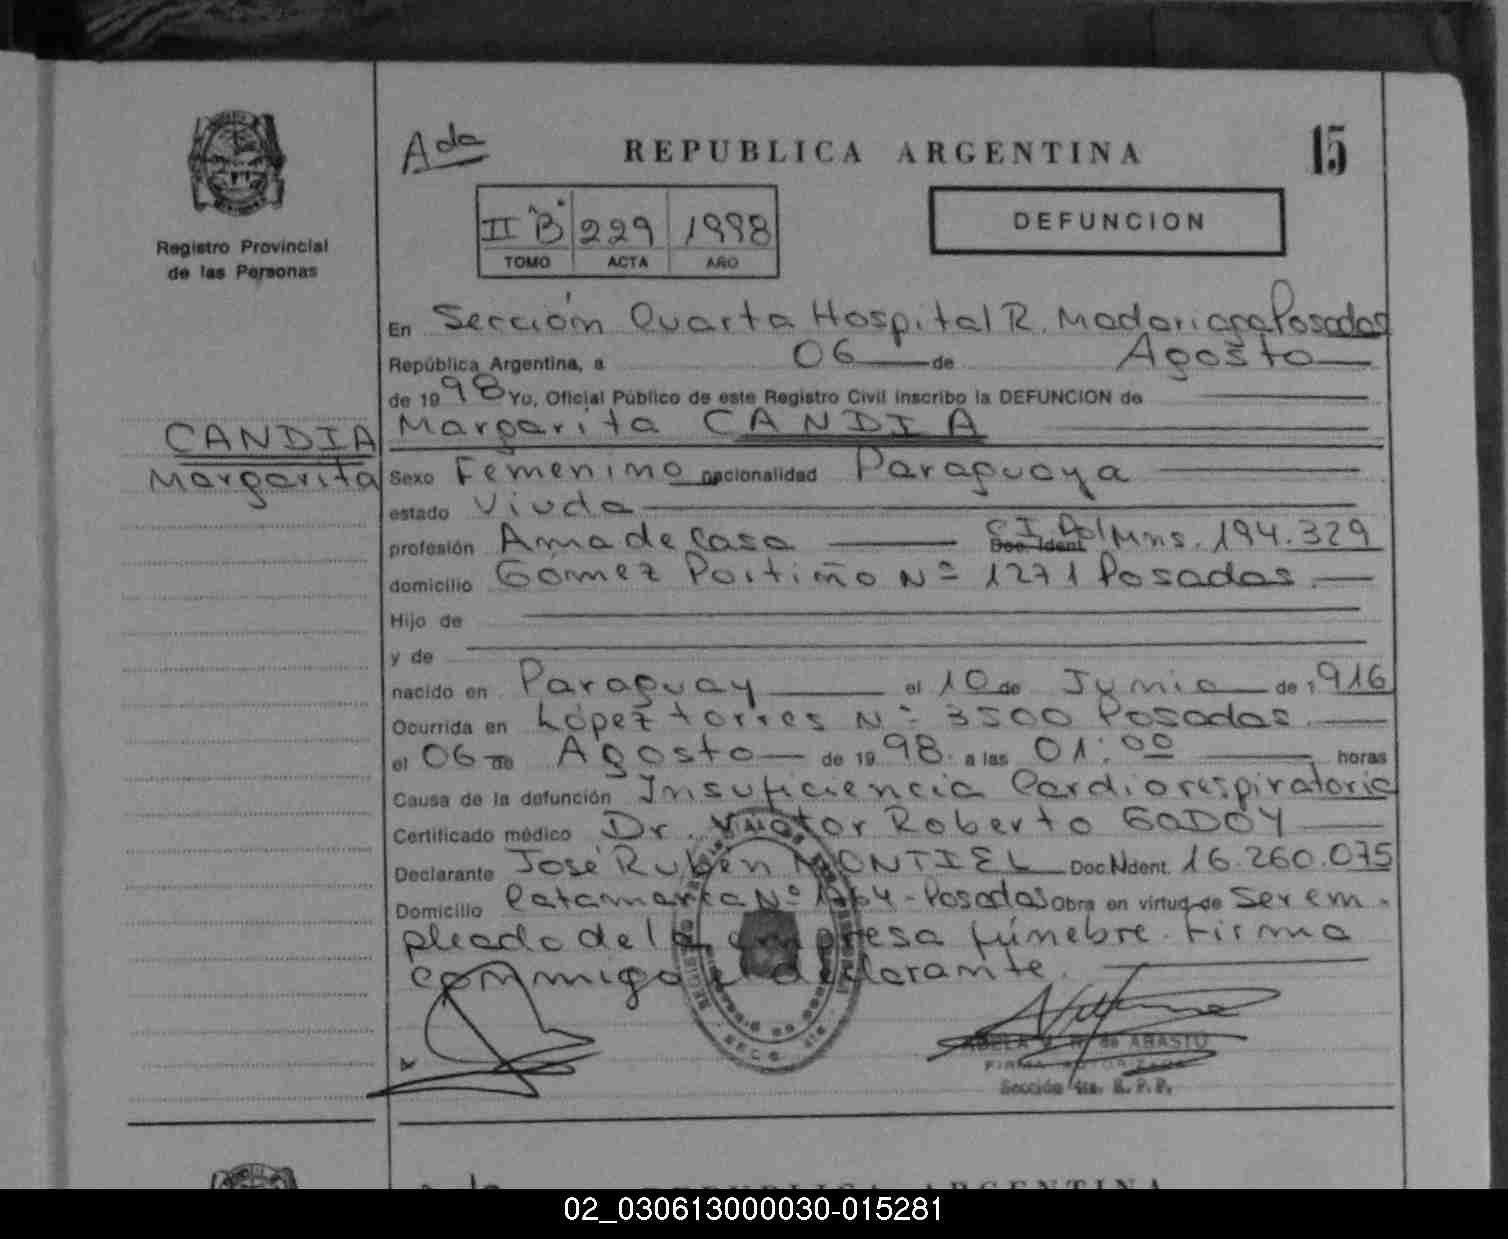 Ada
REPUBLICA ARGENTINA
15
Registro Provincial
de las Personas
II "B" 229 1998
TOMO ACTA AÑO
DEFUNCION
En Sección Cuarta Hospital R. Madariaga Posadas
República Argentina, a 06 de Agosto
de 1998 Yo, Oficial Público de este Registro Civil inscribo la DEFUNCION de
Margarita CANDIA
CANDIA
Margarita
Sexo Femenino nacionalidad Paraguaya
estado Viuda
profesión Ama de Casa C.I. Pol Mns. 194.329
Doc. Ident
domicilio Gomez Portiño Nº 1271 Posadas
Hijo de
y de
nacido en Paraguay el 10 de Junio de 1916
Ocurrida en López torres Nº 3500 Posadas
el 06 de Agosto de 1998 a las 01:00 horas
Causa de la defunción Insuficiencia Cardiorespiratoria
Certificado médico Dr. Victor Roberto GODOY
Declarante José Rubén MONTIEL Doc N Ident. 16.260.075
Domicilio Catamarca Nº - Posadas Obra en virtud de Ser em-
pleado de la empresa fúnebre. Firma
conmigo el declarante.
de ABASTO
FIRMA AUTORIZADA
Sección 4ta. R. P. P.
REPUBLICA ARGENTINA
02_030613000030-015281